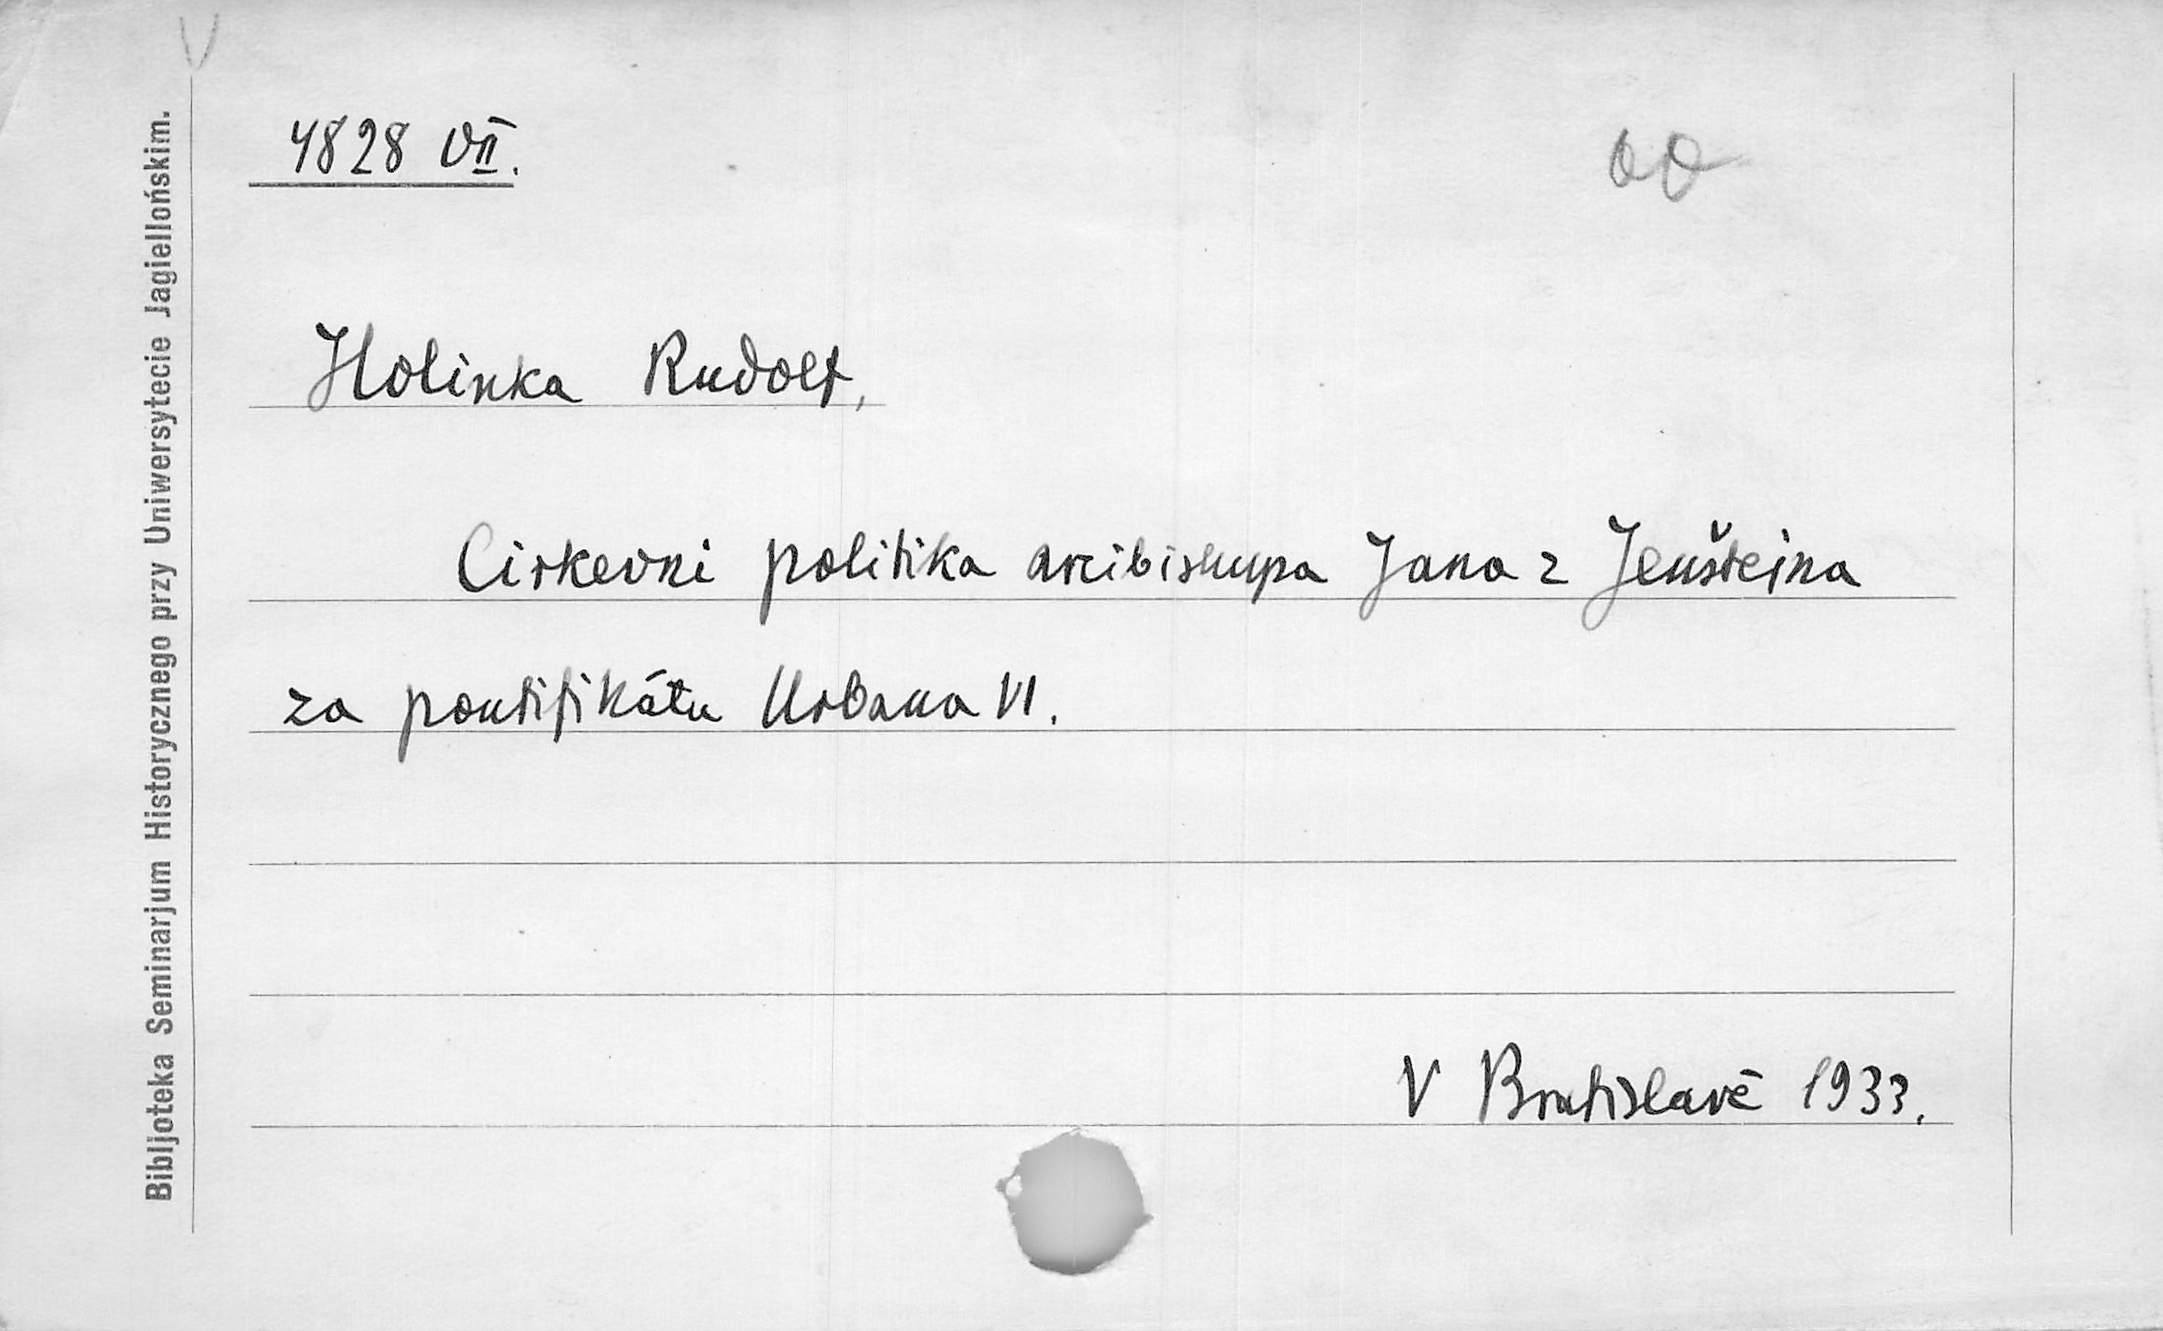 4828 VII.
Holinka Rudolf,
Cirkevni politika arcibiskupa Jana z Jenštejna
za pontifikátu Urbana VI.
V Bratislavě 1933.
Bibljoteka Seminarjum Historycznego przy Uniwersytecie Jagiellońskim.